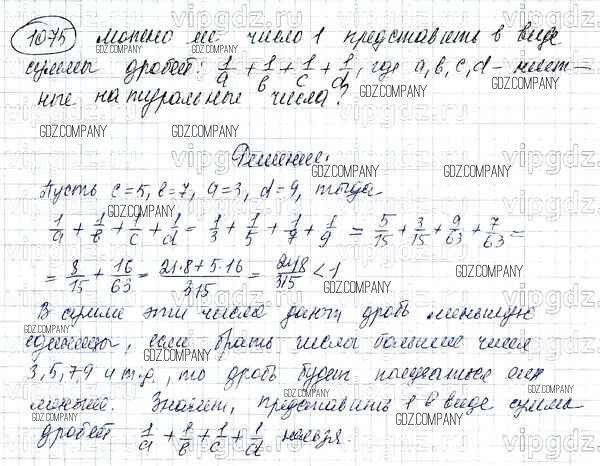 1075 можно ли число 1 представить в виде
суммы дробей: 1/a + 1/b + 1/c + 1/d, где a, b, c, d - нечет-
ные натуральные числа?
Решение:
Пусть c=5, b=7, a=3, d=9, тогда
1/a + 1/b + 1/c + 1/d = 1/3 + 1/5 + 1/7 + 1/9 = 5/15 + 3/15 + 9/63 + 7/63 =
= 8/15 + 16/63 = (21·8+5·16)/315 = 248/315 < 1
В сумме эти числа дают дробь меньшую
единицы, если брать числа большие чем
3, 5, 7, 9 и т.д., то дробь будет получаться еще
меньше. Значит, представить 1 в виде суммы
дробей 1/a + 1/b + 1/c + 1/d нельзя.
GDZ.COMPANY
vipgdz.com